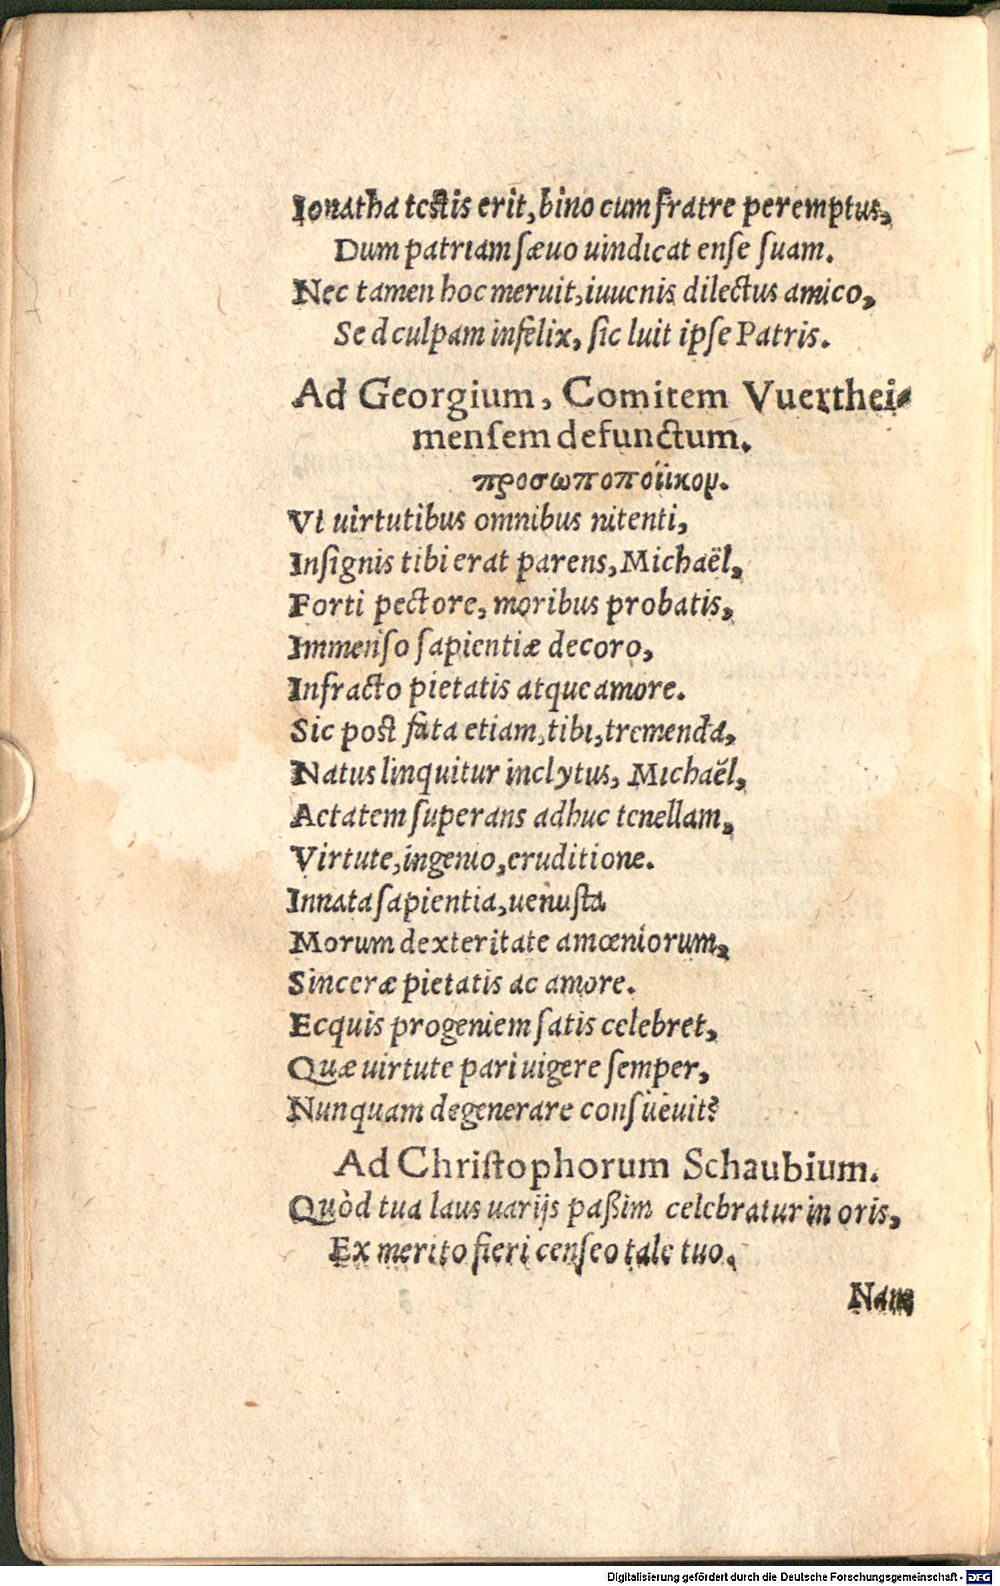 Ionatha testis erit, bino cum fratre peremptus,
Dum patriam sæuo uindicat ense suam.
Nec tamen hoc meruit, iuuenis dilectus amico,
Sed culpam infelix, sic luit ipse Patris.
Ad Georgium, Comitem Vuerthei-
mensem defunctum.
προσωποποιϊκον.
Vt uirtutibus omnibus nitenti,
Insignis tibi erat parens, Michaël,
Forti pectore, moribus probatis,
Immenso sapientiæ decoro,
Infracto pietatis atque amore.
Sic post fata etiam, tibi, tremenda,
Natus linquitur inclytus, Michaël,
Aetatem superans adhuc tenellam,
Virtute, ingenio, eruditione.
Innata sapientia, uenusta
Morum dexteritate amœniorum,
Sinceræ pietatis ac amore.
Ecquis progeniem satis celebret,
Quæ uirtute pari uigere semper,
Nunquam degenerare consueuit?
Ad Christophorum Schaubium.
Quòd tua laus uarijs paßim celebratur in oris,
Ex merito fieri censeo tale tuo.
Nam
Digitalisierung gefördert durch die Deutsche Forschungsgemeinschaft - DFG